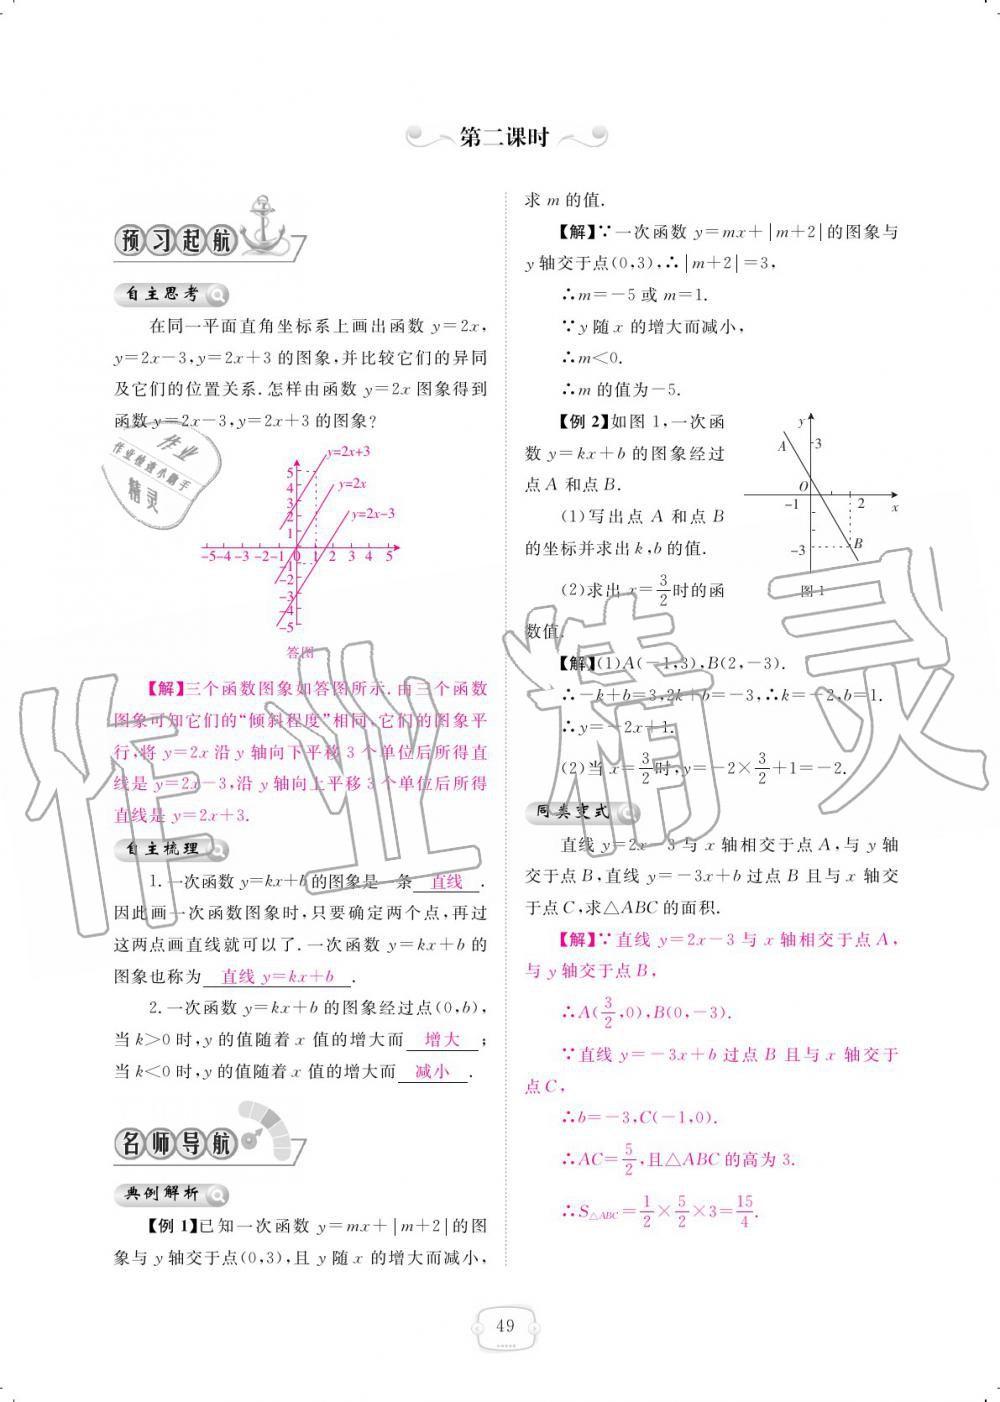 第二课时
预习起航
自主思考
在同一平面直角坐标系上画出函数 y=2x,
y=2x-3,y=2x+3 的图象,并比较它们的异同
及它们的位置关系.怎样由函数 y=2x 图象得到
函数 y=2x-3,y=2x+3 的图象?
y=2x+3
y=2x
y=2x-3
5
4
3
2
1
-5 -4 -3 -2 -1 0 1 2 3 4 5
-1
-2
-3
-4
-5
答图
【解】三个函数图象如答图所示.由三个函数
图象可知它们的“倾斜程度”相同,它们的图象平
行,将 y=2x 沿 y 轴向下平移 3 个单位后所得直
线是 y=2x-3,沿 y 轴向上平移 3 个单位后所得
直线是 y=2x+3.
自主梳理
1.一次函数 y=kx+b 的图象是一条 直线 .
因此画一次函数图象时,只要确定两个点,再过
这两点画直线就可以了.一次函数 y=kx+b 的
图象也称为 直线 y=kx+b .
2.一次函数 y=kx+b 的图象经过点(0,b),
当 k>0 时,y 的值随着 x 值的增大而 增大 ;
当 k<0 时,y 的值随着 x 值的增大而 减小 .
名师导航
典例解析
【例 1】已知一次函数 y=mx+|m+2|的图
象与 y 轴交于点(0,3),且 y 随 x 的增大而减小,
求 m 的值.
【解】∵一次函数 y=mx+|m+2|的图象与
y 轴交于点(0,3),∴|m+2|=3,
∴m=-5 或 m=1.
∵y 随 x 的增大而减小,
∴m<0.
∴m 的值为-5.
【例 2】如图 1,一次函
数 y=kx+b 的图象经过
点 A 和点 B.
(1)写出点 A 和点 B
的坐标并求出 k,b 的值.
(2)求出 x=3/2时的函
数值.
y
A
3
O
-1
2
x
-3
B
图 1
【解】(1)A(-1,3),B(2,-3).
∴-k+b=3,2k+b=-3,∴k=-2,b=1.
∴y=-2x+1.
(2)当 x=3/2时,y=-2×3/2+1=-2.
同类变式
直线 y=2x-3 与 x 轴相交于点 A,与 y 轴
交于点 B,直线 y=-3x+b 过点 B 且与 x 轴交
于点 C,求△ABC 的面积.
【解】∵直线 y=2x-3 与 x 轴相交于点 A,
与 y 轴交于点 B,
∴A(3/2,0),B(0,-3).
∵直线 y=-3x+b 过点 B 且与 x 轴交于
点 C,
∴b=-3,C(-1,0).
∴AC=5/2,且△ABC 的高为 3.
∴S△ABC=1/2×5/2×3=15/4.
49
作业
作业检查小助手
精灵
作业精灵